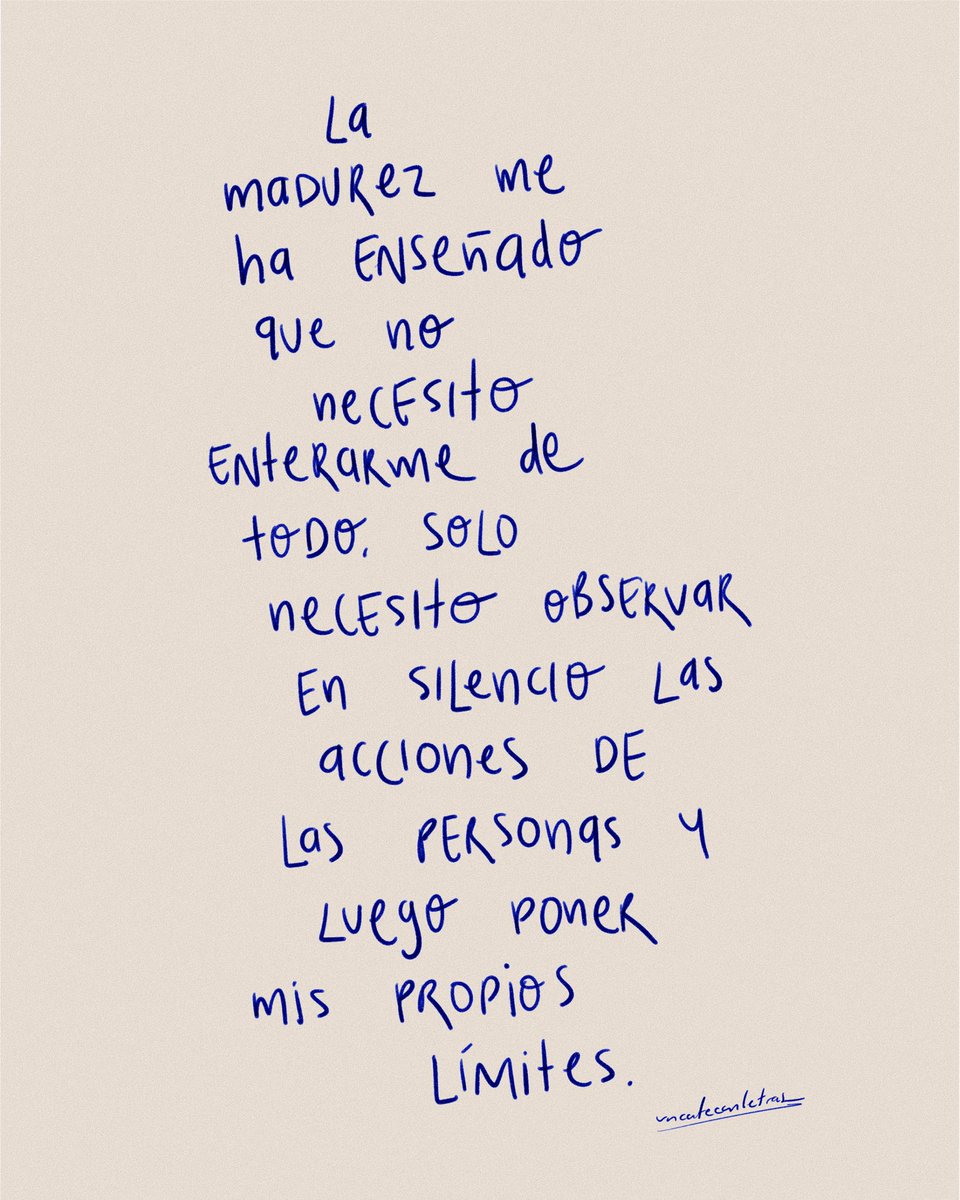 La
madurez me
ha enseñado
que no
necesito
enterarme de
todo. solo
necesito observar
en silencio las
acciones de
las personas y
luego poner
mis propios
límites.
uncafeconletras